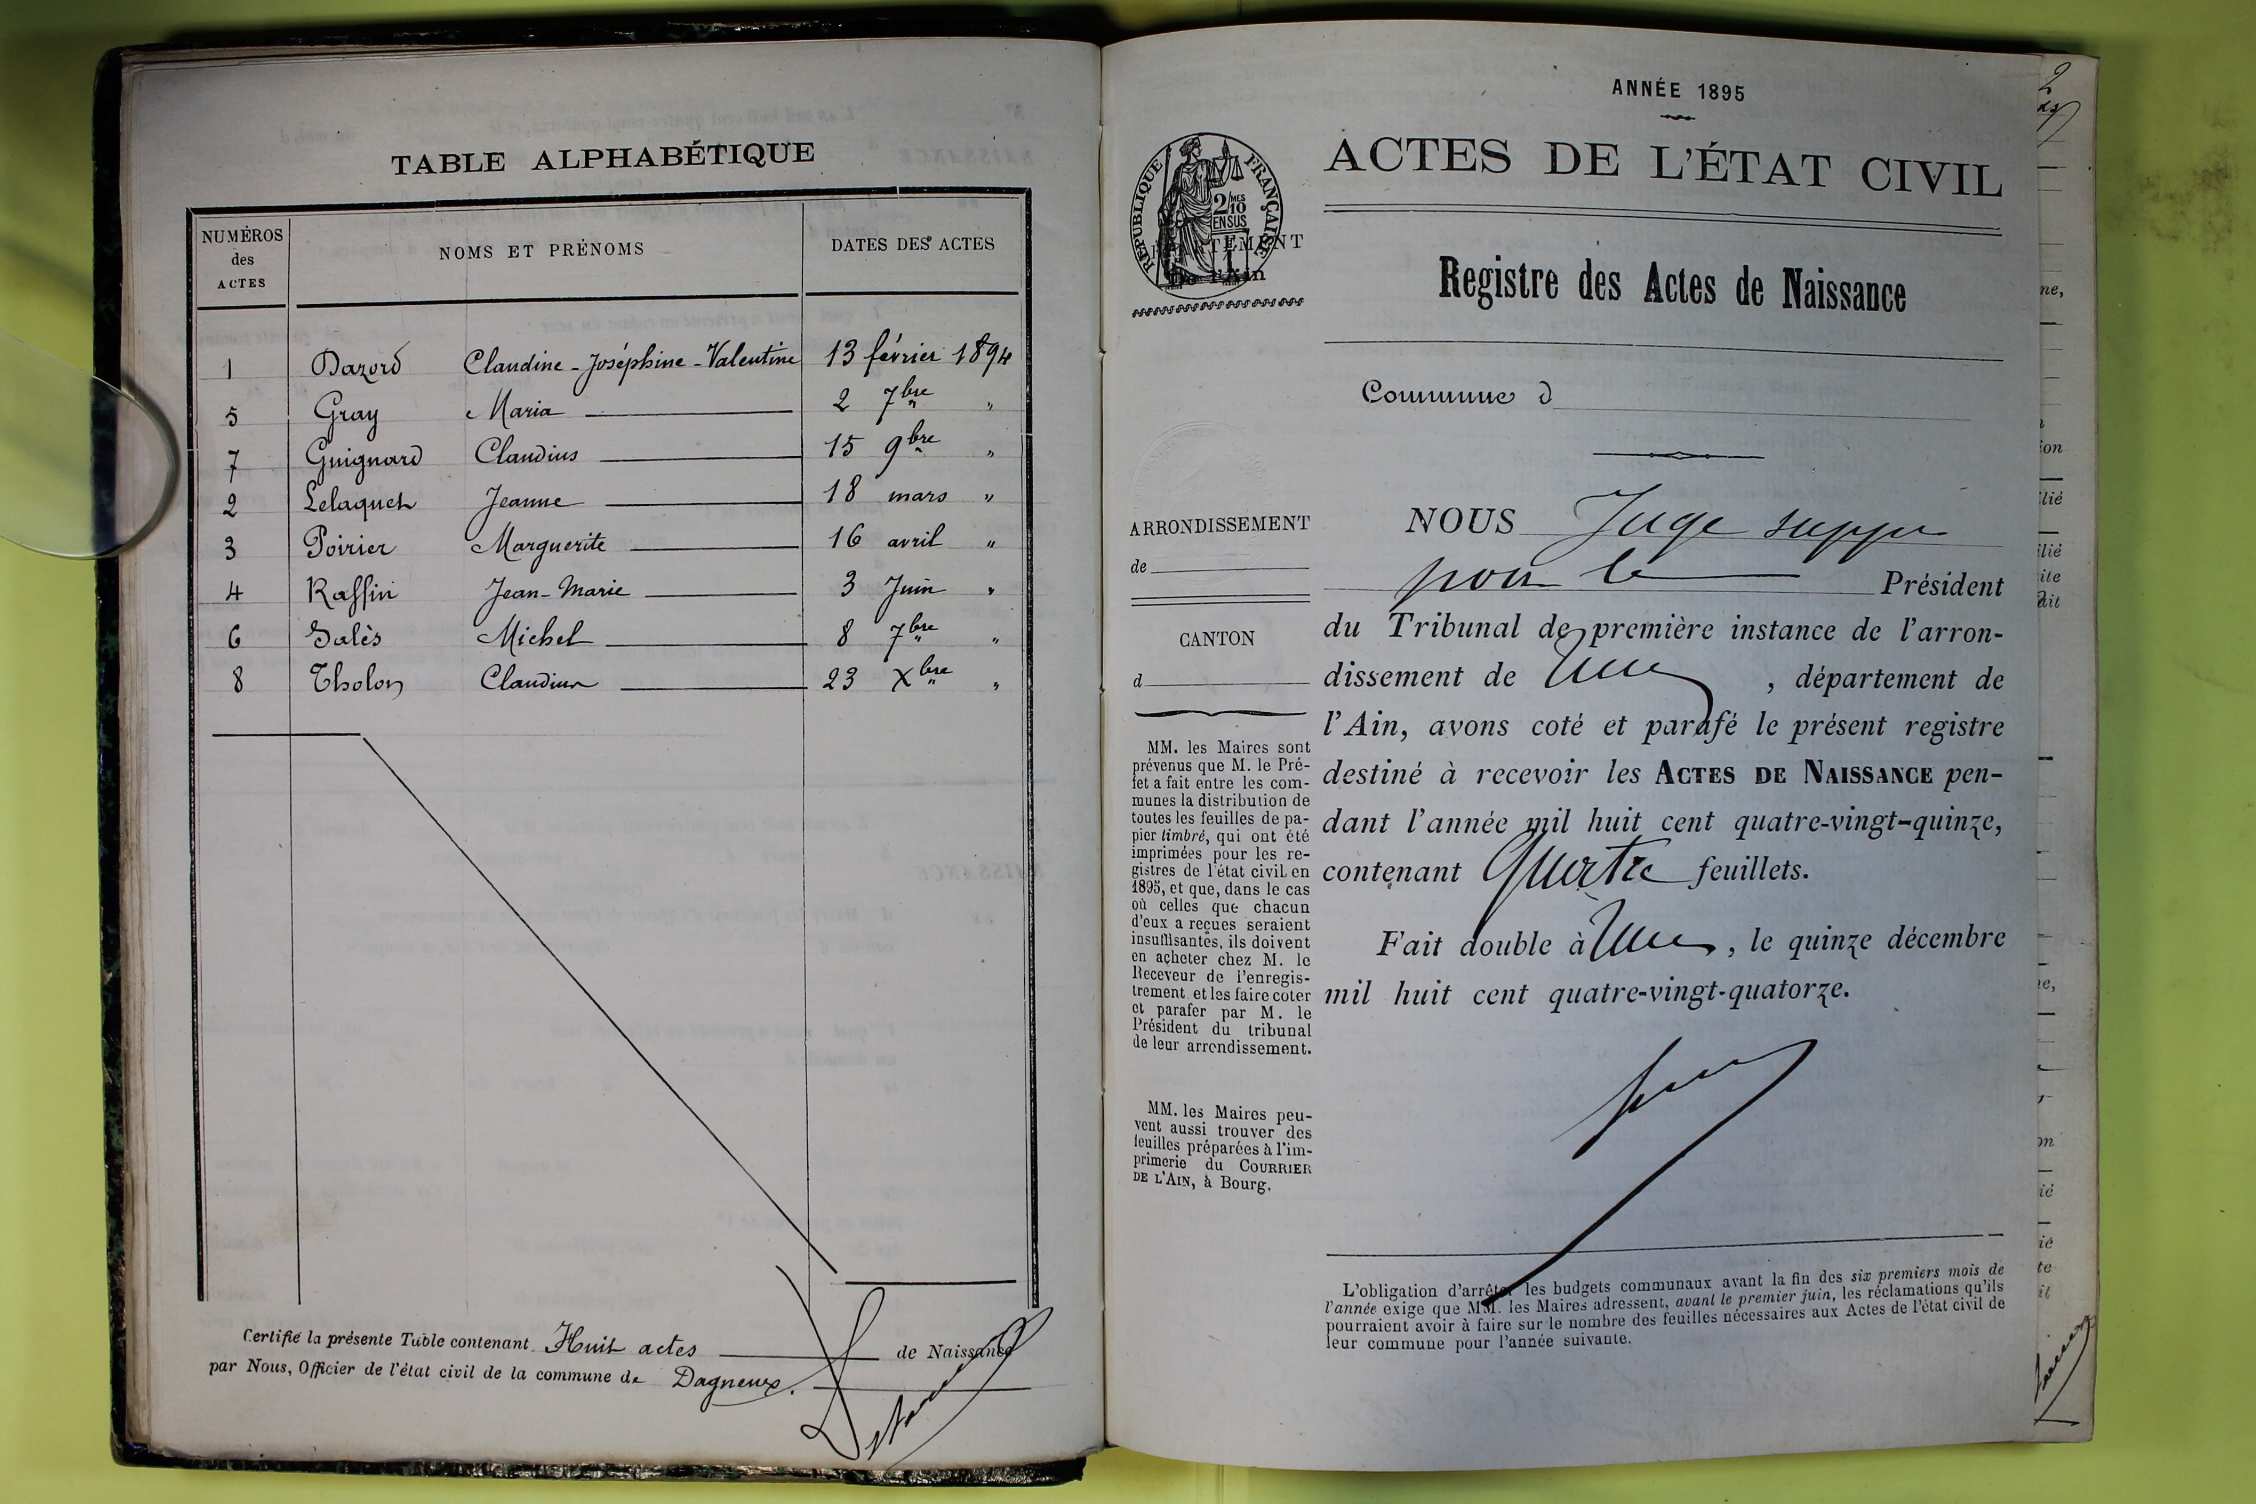 TABLE ALPHABÉTIQUE
NUMÉROS des ACTES
NOMS ET PRÉNOMS
DATES DES ACTES
1 Dazord Claudine-Joséphine-Valentine 13 février 1894
5 Gray Maria 2 7bre "
7 Guignard Claudius 15 9bre "
2 Lelaquet Jeanne 18 mars "
3 Poirier Marguerite 16 avril "
4 Raffin Jean-Marie 3 Juin "
6 Salès Michel 8 7bre "
8 Tholon Claudius 23 Xbre "
Certifié la présente Table contenant Huit actes de Naissance
par Nous, Officier de l'état civil de la commune de Dagneux.
ANNÉE 1895
ACTES DE L'ÉTAT CIVIL
RÉPUBLIQUE FRANÇAISE
2 MES 10
EN SUS
DÉPARTEMENT
De l'Ain
Registre des Actes de Naissance
Commune d
ARRONDISSEMENT
de
CANTON
d
MM. les Maires sont
prévenus que M. le Pré-
fet a fait entre les com-
munes la distribution de
toutes les feuilles de pa-
pier timbré, qui ont été
imprimées pour les re-
gistres de l'état civil en
1895, et que, dans le cas
où celles que chacun
d'eux a reçues seraient
insuffisantes, ils doivent
en acheter chez M. le
Receveur de l'enregis-
trement et les faire coter
et parafer par M. le
Président du tribunal
de leur arrondissement.
MM. les Maires peu-
vent aussi trouver des
feuilles préparées à l'im-
primerie du COURRIER
DE L'AIN, à Bourg.
NOUS Juge
pour le Président
du Tribunal de première instance de l'arron-
dissement de , département de
l'Ain, avons coté et parafé le présent registre
destiné à recevoir les ACTES DE NAISSANCE pen-
dant l'année mil huit cent quatre-vingt-quinze,
contenant Quatre feuillets.
Fait double à , le quinze décembre
mil huit cent quatre-vingt-quatorze.
L'obligation d'arrêter les budgets communaux avant la fin des six premiers mois de
l'année exige que MM. les Maires adressent, avant le premier juin, les réclamations qu'ils
pourraient avoir à faire sur le nombre des feuilles nécessaires aux Actes de l'état civil de
leur commune pour l'année suivante.